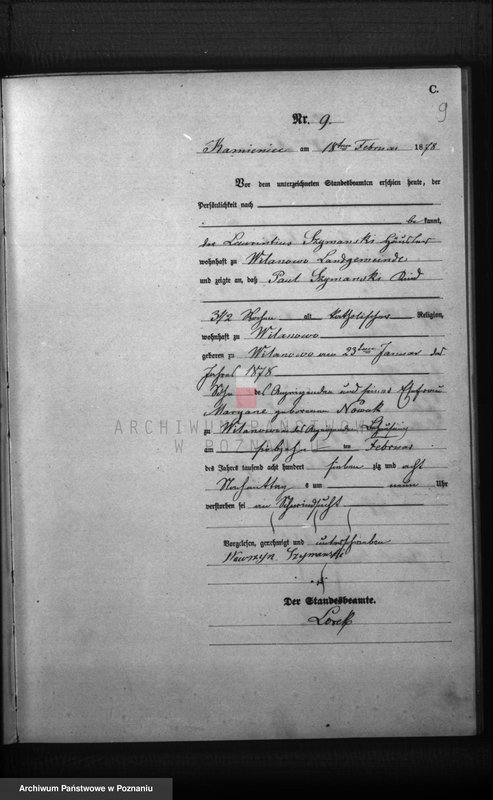 C.
9
Nr. 9.
Kamieniec am 18ten Februar 1878
Vor dem unterzeichneten Standesbeamten erschien heute, der
Persönlichkeit nach
be kannt,
der Laurentius Szymanski Häusler
wohnhaft zu Wilanowo Landgemeinde
und zeigte an, daß Paul Szymanski Kind
3 1/2 Wochen alt katholischer Religion,
wohnhaft zu Wilanowo
geboren zu Wilanowo am 23ten Januar des
Jahres 1878
Sohn des Anzeigenden und seiner Ehefrau
Maryane geborenen Nowak
zu Wilanowo
am siebzehn ten Februar
des Jahres tausend acht hundert sieben zig und acht
Nachmittag s um neun Uhr
verstorben sei an Schwindsucht
Vorgelesen, genehmigt und unterschrieben
Wawrzyn Szymanski
Der Standesbeamte.
Lorek
ARCHIWUM PAŃSTWOWE
W POZNANIU
Archiwum Państwowe w Poznaniu